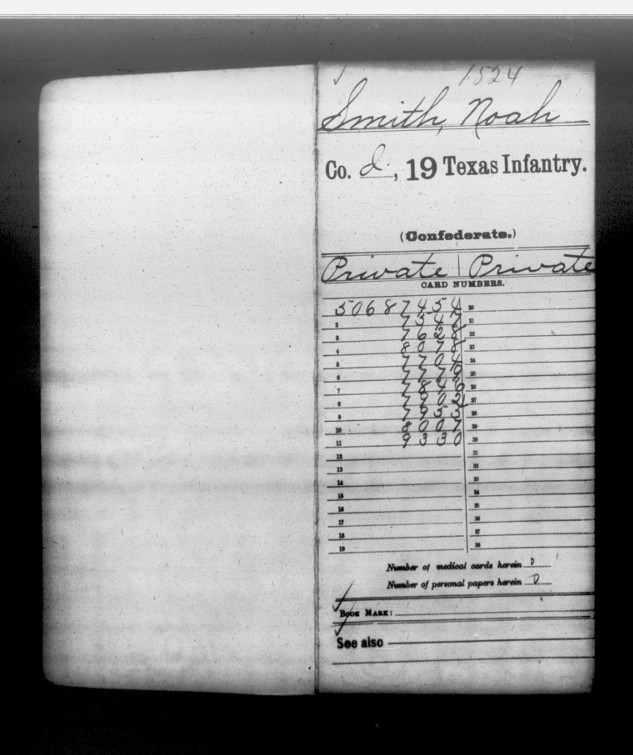 1524
Smith, Noah
Co. D., 19 Texas Infantry.
(Confederate.)
Private | Private
CARD NUMBERS.
50687454 20
2 7547 21
3 7628 22
4 8078 23
5 7704 24
6 7779 25
7 7846 26
8 7902 27
9 7953 28
10 8007 29
11 9330 30
12 31
13 32
14 33
15 34
16 35
17 36
18 37
19 38
Number of medical cards herein 0
Number of personal papers herein 0
BOOK MARK:
See also